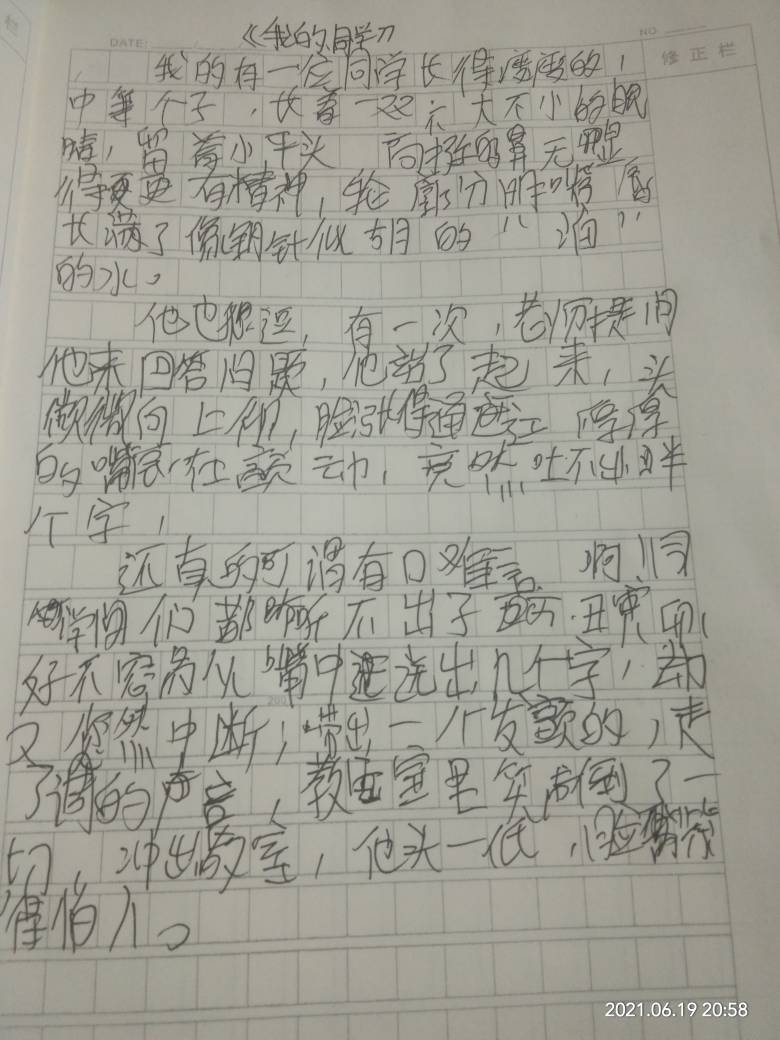 DATE: / / NO.
《我的同学》
修正栏
我的有一位同学长得瘦瘦的,
中等个子,长着一双不大不小的眼
睛,留着小平头 高挺的鼻无显
得更有精神,轮廓分明的嘴唇
长满了像钢针似胡的“油”
的水。
他也很逗,有一次,老师提问
他来回答问题,他站了起来,头
微微向上仰,脸张得通红 厚厚
的嘴唇在颤动,竟然吐不出半
个字,
还真的可谓有口难言 啊!同
学们都听不出子
好不容易从嘴中迸选出几个字,却
又忽然中断;带出一个发颤的,走
了调的声音,教室里笑倒了一
切,冲出教室,他头一低,脸
得怕人。
2021.06.19 20:58